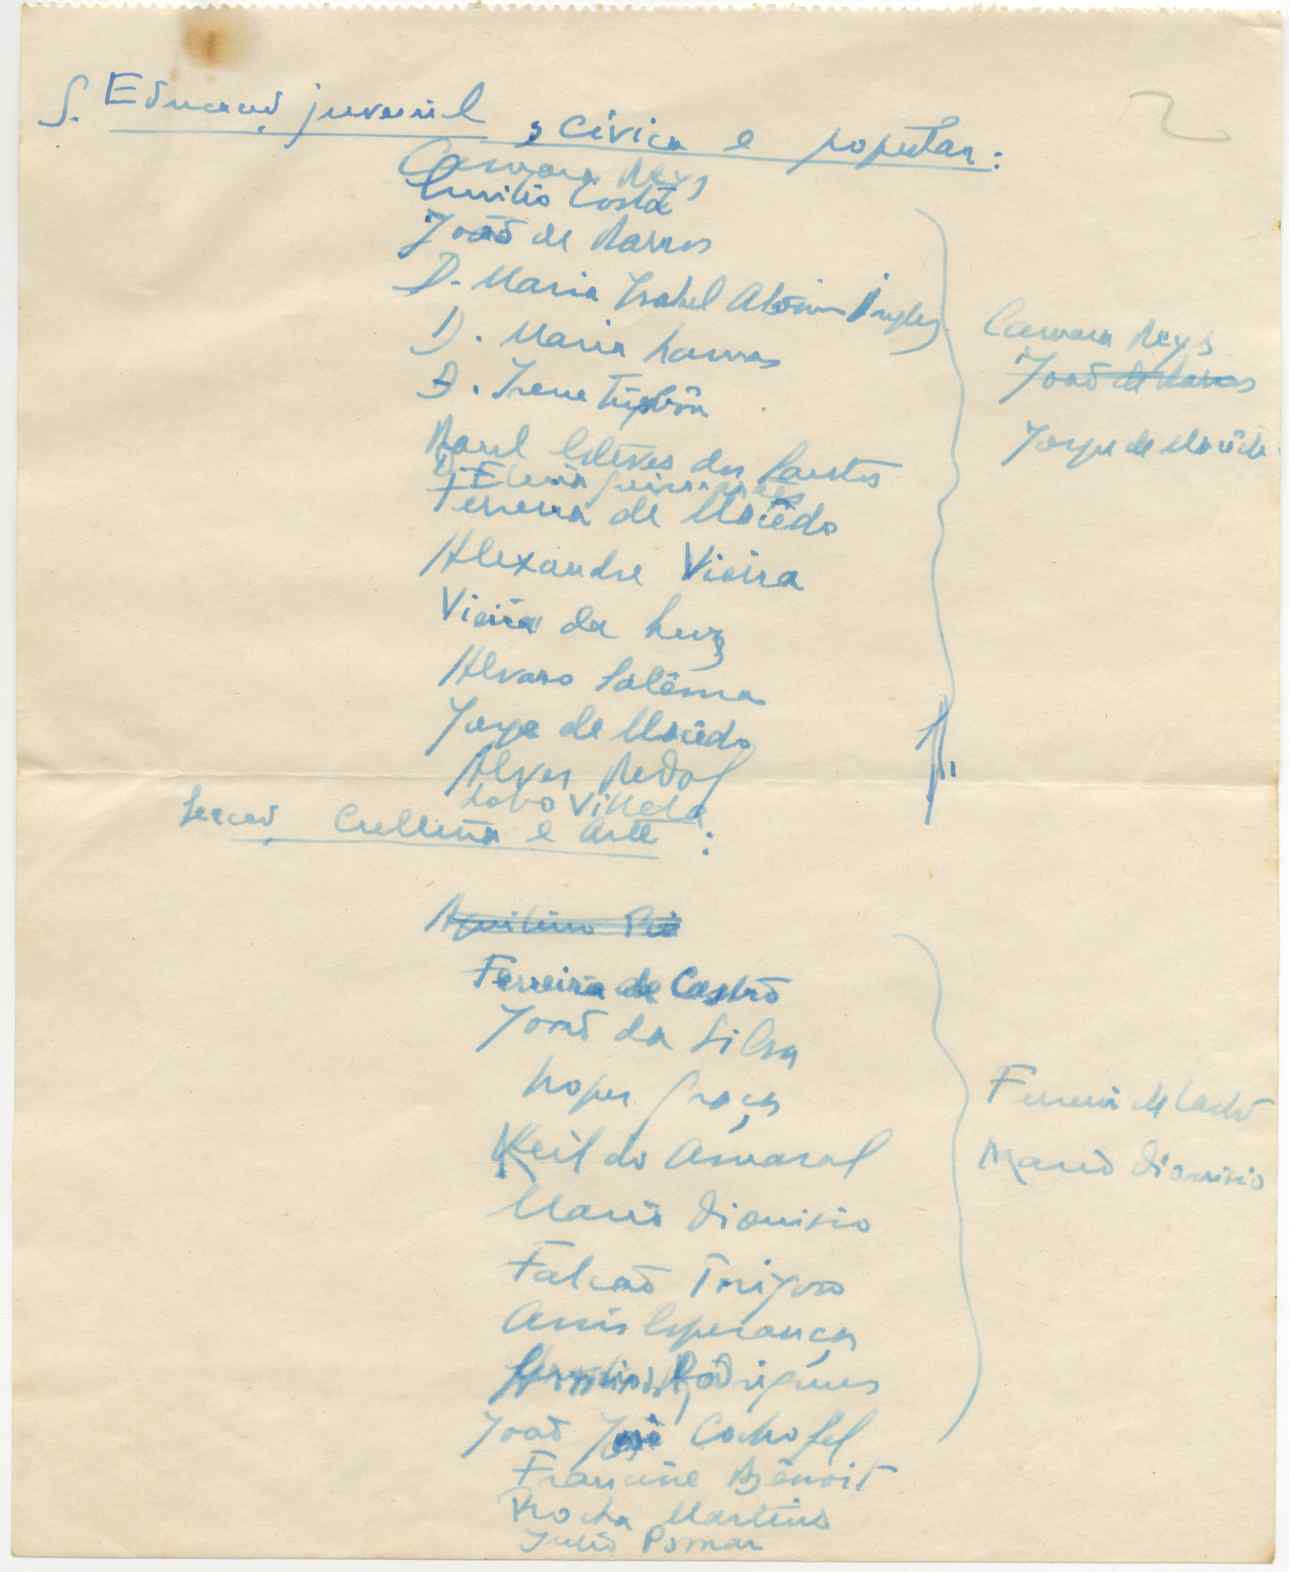 S. Educação juvenil, cívica e popular:
Camara Reys
Emilio Costa
João de Barros
D. Maria Isabel Aboim Inglez
D. Maria Lamas
D. Irene
Raul Esteves dos Santos
D. Elina Guimarães
Ferreira de Macêdo
Alexandre Vieira
Vieira da Luz
Alvaro Salêma
Jorge de Macêdo
Alves Redol
Lobo Villela
Camara Reys
João de Barros
Jorge de Macêdo
Secção Cultura e Arte:
Aquilino Ri
Ferreira de Castro
João da Silva
Lopes Graça
Keil do Amaral
Mario Dionisio
Falcão Trigoso
Assis Esperança
Rodrigues
João José Cochofel
Francine Benoit
Rocha Martins
Julio Pomar
Ferreira de Castro
Mario Dionisio